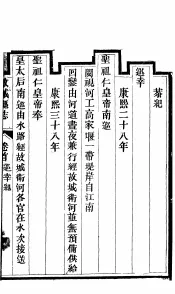 恭紀
巡幸
康熙二十八年
聖祖仁皇帝南巡
閱視河工高家堰一帶堤岸自江南
回鑾由河道晝夜兼行經故城衛河並無預備供給
康熙三十八年
聖祖仁皇帝奉
皇太后南巡由水路經故城衛河各官在水次接送
故城縣志
卷首 巡幸